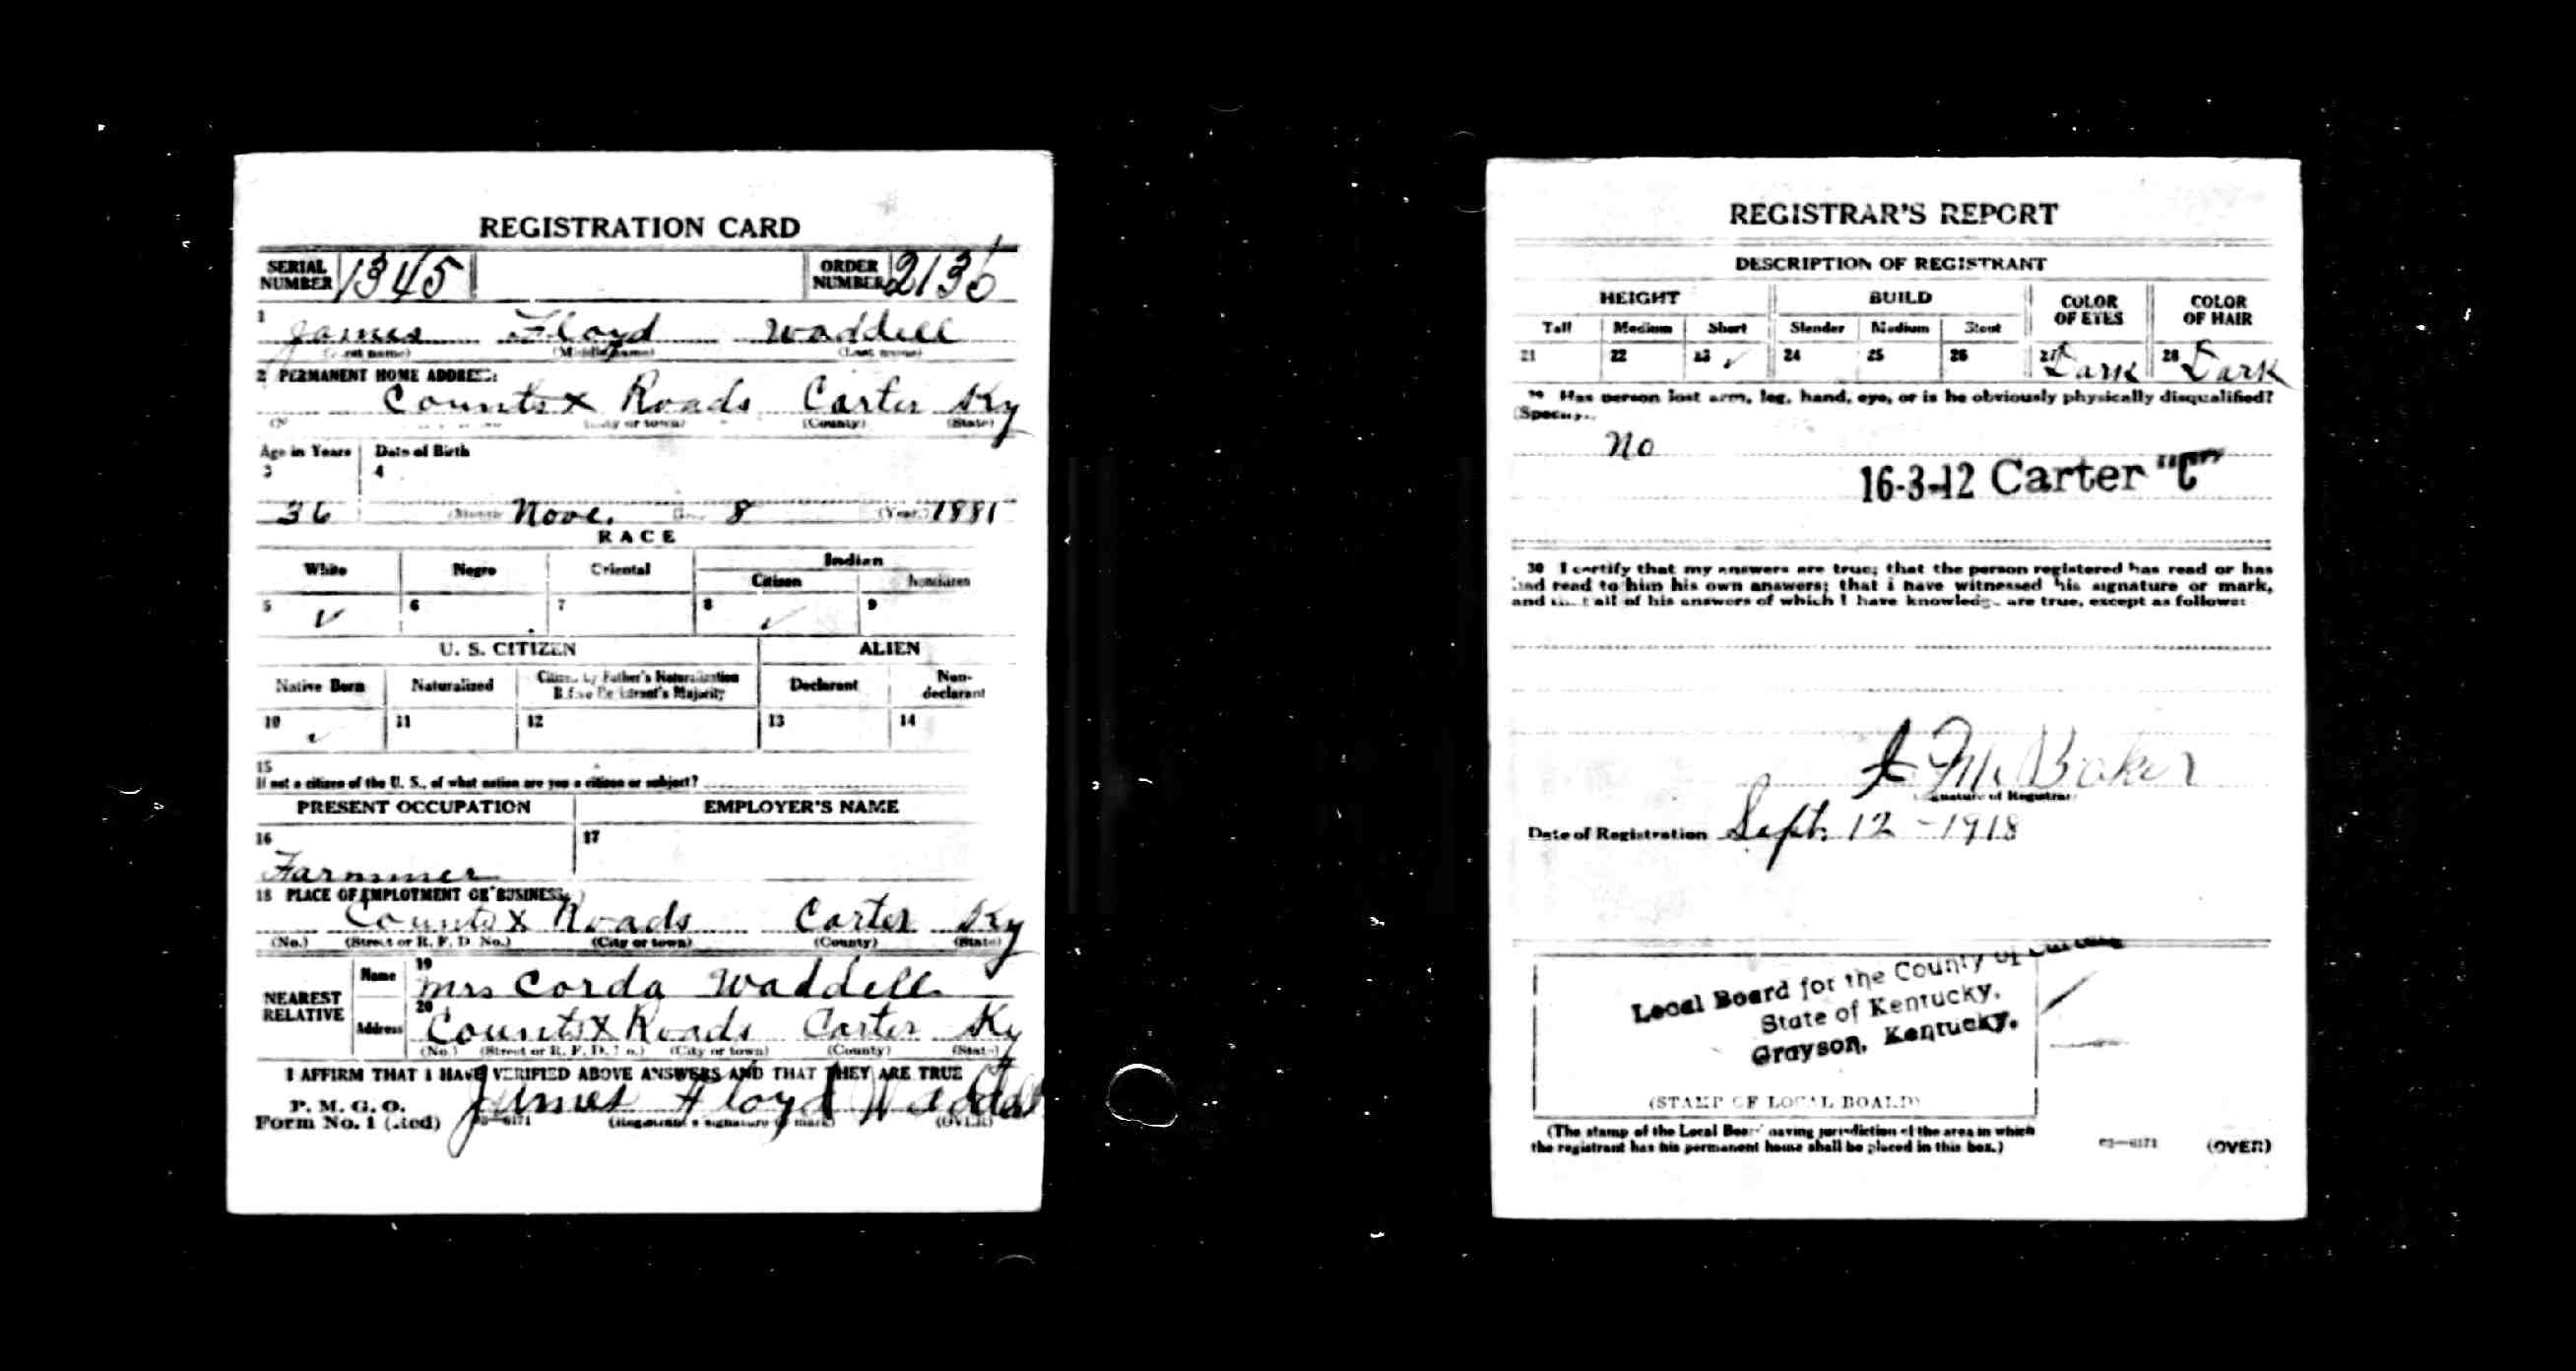 REGISTRATION CARD
SERIAL NUMBER 1345 ORDER NUMBER 2135
1 James Floyd Waddell
(First name) (Middle name) (Last name)
2 PERMANENT HOME ADDRESS:
Counts X Roads Carter Ky
(City or town) (County) (State)
Age in Years Date of Birth
3 4
36 (Month) Nove. 8 (Year) 1881
RACE
White Negro Oriental Indian
Citizen Noncitizen
5 ✓ 6 7 8 ✓ 9
U. S. CITIZEN ALIEN
Native Born Naturalized Citizen by Father's Naturalization Before Registrant's Majority Declarant Non-declarant
10 ✓ 11 12 13 14
15
If not a citizen of the U. S., of what nation are you a citizen or subject?
PRESENT OCCUPATION EMPLOYER'S NAME
16 17
Farmmer
18 PLACE OF EMPLOYMENT OR BUSINESS:
Counts X Roads Carter Ky
(No.) (Street or R. F. D. No.) (City or town) (County) (State)
NEAREST RELATIVE Name 19 Mrs Corda Waddell
Address 20 Counts X Roads Carter Ky
(No.) (Street or R. F. D. No.) (City or town) (County) (State)
I AFFIRM THAT I HAVE VERIFIED ABOVE ANSWERS AND THAT THEY ARE TRUE
P. M. G. O.
Form No. 1 (Red) James Floyd Waddell
(Registrant's signature or mark) (OVER)
REGISTRAR'S REPORT
DESCRIPTION OF REGISTRANT
HEIGHT BUILD COLOR OF EYES COLOR OF HAIR
Tall Medium Short Slender Medium Stout
21 22 23 ✓ 24 25 26 27 Dark 28 Dark
29 Has person lost arm, leg, hand, eye, or is he obviously physically disqualified?
(Specify.)
No
16-3-12 Carter "C"
30 I certify that my answers are true; that the person registered has read or has
had read to him his own answers; that I have witnessed his signature or mark,
and that all of his answers of which I have knowledge are true, except as follows:
Baker
(Signature of Registrar)
Date of Registration Sept. 12 - 1918
Local Board for the County of Carter
State of Kentucky,
Grayson, Kentucky.
(STAMP OF LOCAL BOARD)
(The stamp of the Local Board having jurisdiction of the area in which
the registrant has his permanent home shall be placed in this box.)
03—6171 (OVER)